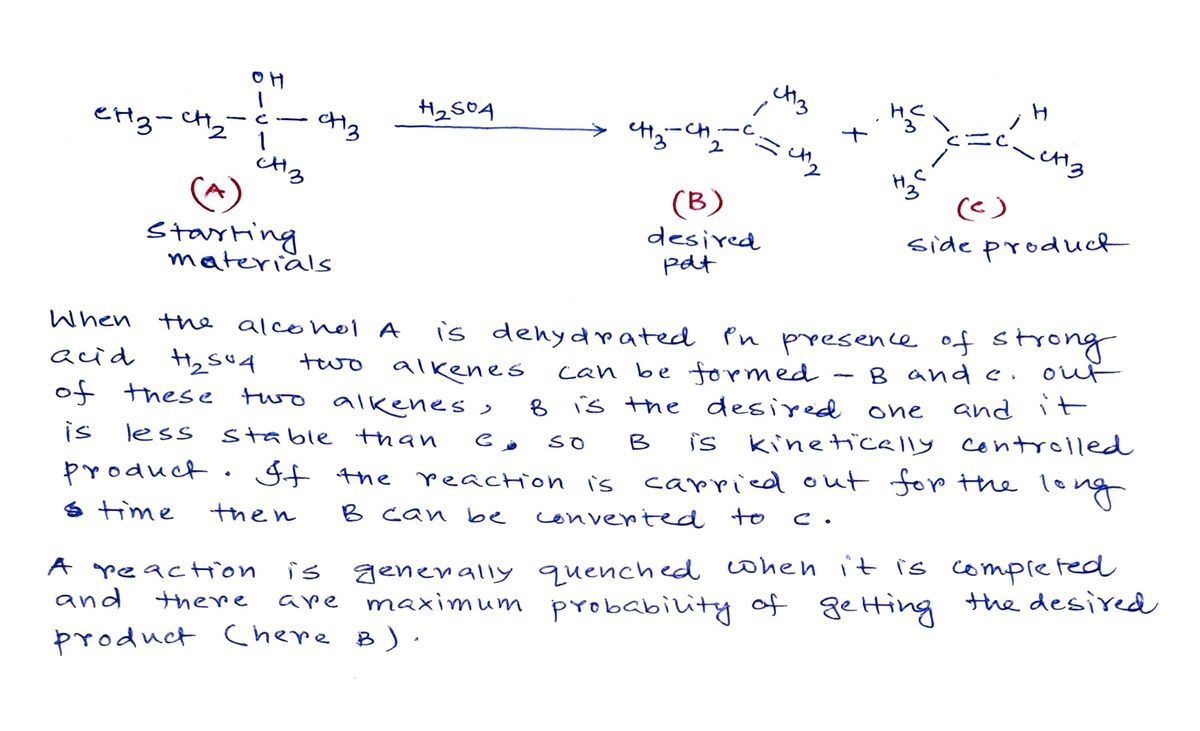 OH
CH3-CH2-C-CH3
CH3
H2SO4
CH3-CH2-C=CH2
CH3
+
H3C H
C=C
H3C CH3
(A)
Starting
materials
(B)
desired
pdt
(C)
side product
When the alcohol A is dehydrated in presence of strong
acid H2SO4 two alkenes can be formed - B and C. out
of these two alkenes, B is the desired one and it
is less stable than C, so B is kinetically controlled
product. If the reaction is carried out for the long
time then B can be converted to C.
A reaction is generally quenched when it is completed
and there are maximum probability of getting the desired
product (here B).